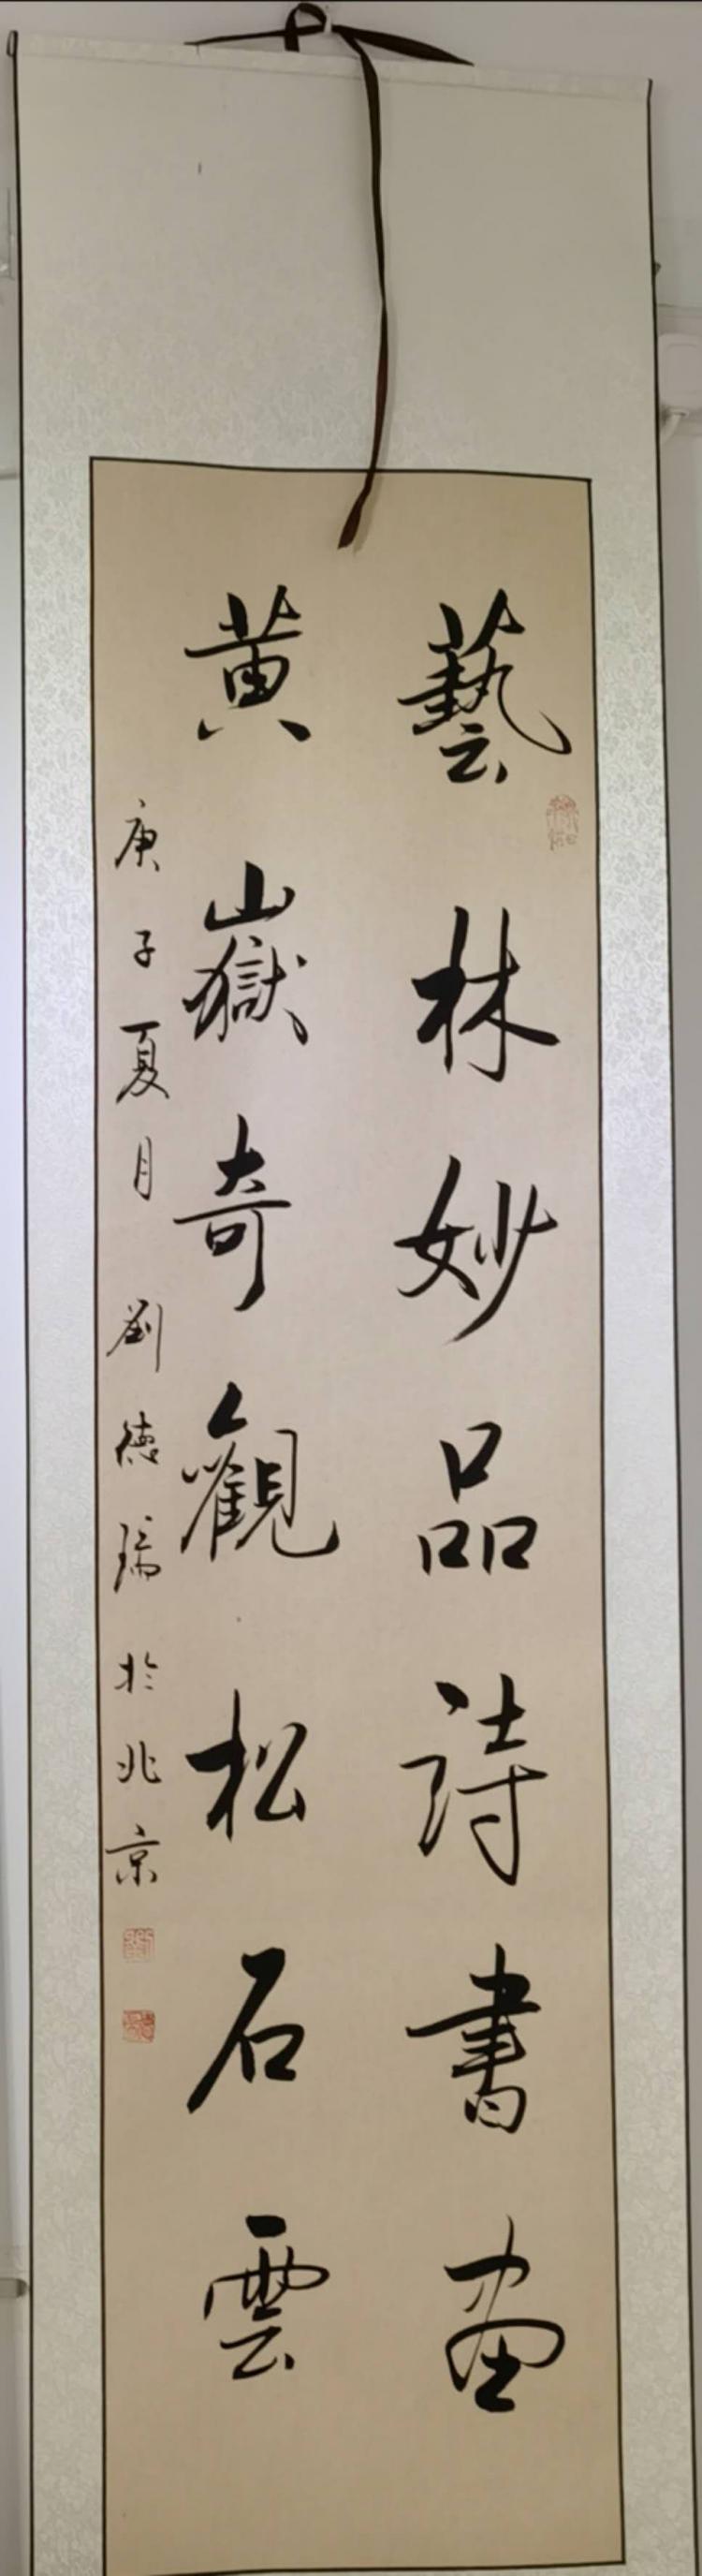 藝林妙品詩書画
黄嶽奇觀松石雲
庚子夏月劉德瑞於北京